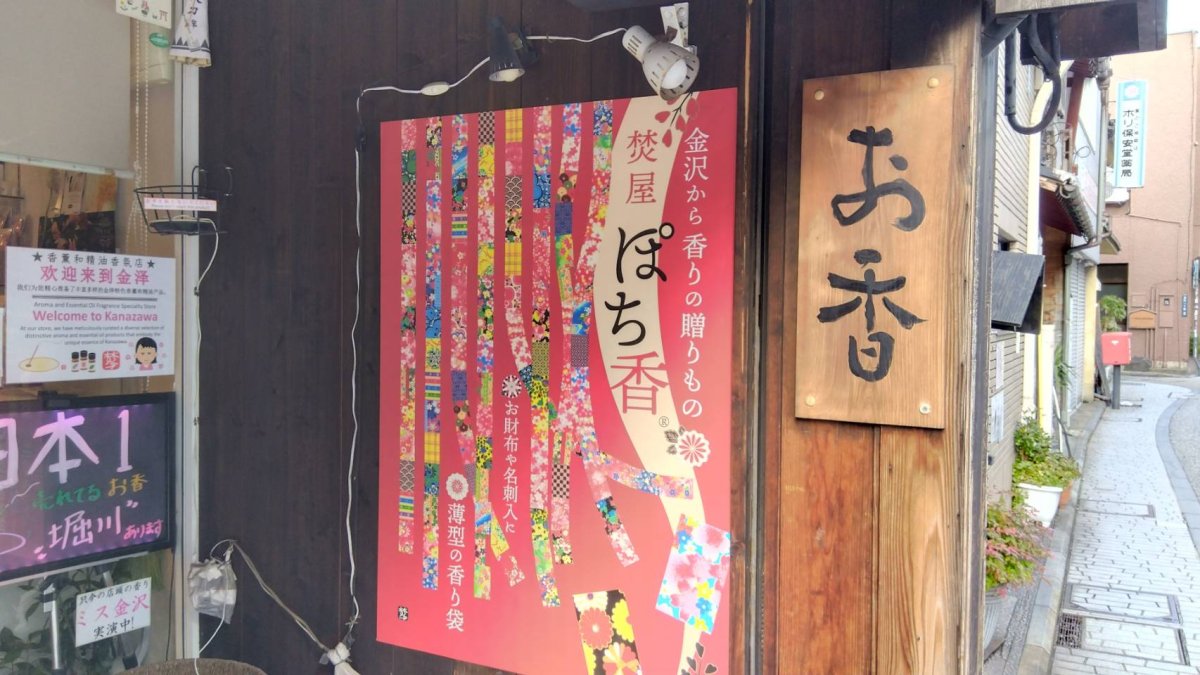 ★香薰和精油香氛店★
欢迎来到金泽
Aroma and Essential Oil Fragrance Specialty Store
Welcome to Kanazawa
At our store, we have meticulously curated a diverse selection of
distinctive aroma and essential oil products that embody the
unique essence of Kanazawa.
日本1
売れてる お香
堀川 あります
只今の店頭の香り
ミス金沢
実演中!
金沢から香りの贈りもの
焚屋
ぽち香®
お財布や名刺入に
薄型の香り袋
お香
ホリ保安堂薬局